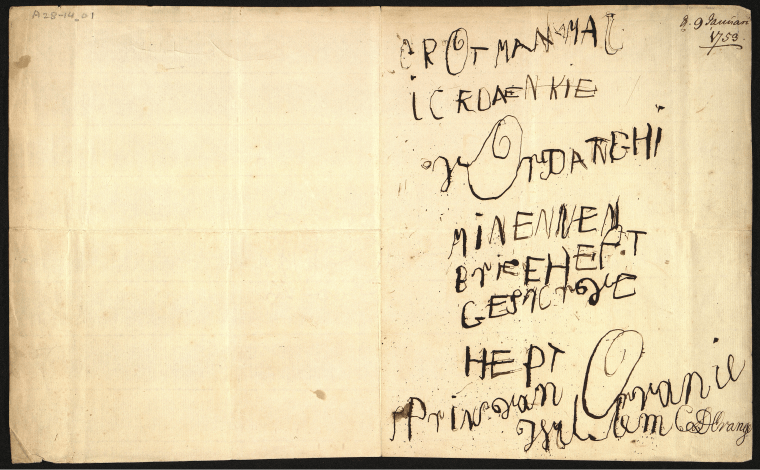 A28-14_01
D. 9 Januari
1753.
GROTMANMA
ICRDAENKIE
VOORDANGHI
MINENNEN
BRIEEHEFT
GESNCROVE
HEPT
Prin van Orranie
Willem C.D'Orange